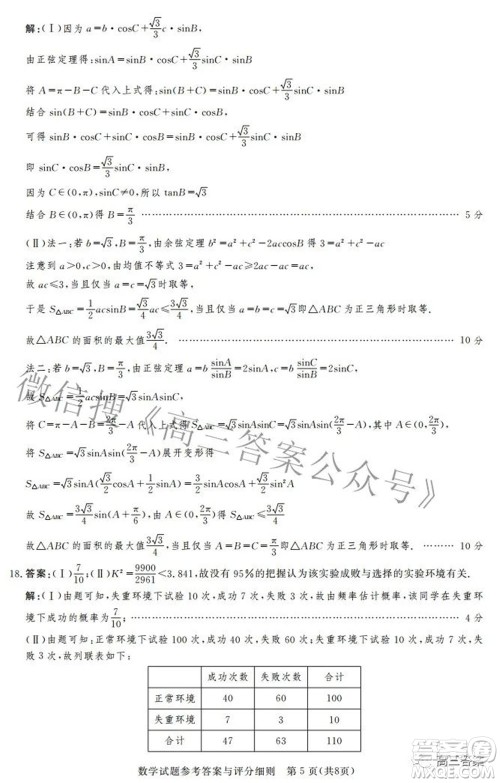 解:(Ⅰ)因为 a=b·cosC+√3/3 c·sinB,
由正弦定理得:sinA=sinB·cosC+√3/3 sinC·sinB
将 A=π-B-C 代入上式得:sin(B+C)=sinB·cosC+√3/3 sinC·sinB
结合 sin(B+C)=sinB·cosC+sinC·cosB,
可得 sinB·cosC+sinC·cosB=sinB·cosC+√3/3 sinC·sinB
即 sinC·cosB=√3/3 sinC·sinB,
因为 C∈(0,π),sinC≠0,所以 tanB=√3
结合 B∈(0,π)得 B=π/3 …… 5 分
(Ⅱ)法一:若 b=√3,B=π/3,由余弦定理 b²=a²+c²-2accosB 得 3=a²+c²-ac
注意到 a>0,c>0,由均值不等式 3=a²+c²-ac⩾2ac-ac=ac
故 ac⩽3,当且仅当 a=c=√3时取等,
于是 S△ABC=1/2 acsinB=√3/4 ac⩽3√3/4,当且仅当 a=b=c=√3即△ABC 为正三角形时取等.
故△ABC 的面积的最大值3√3/4. …… 10 分
法二:若 b=√3,B=π/3,由正弦定理 a=b sinA/sinB=2sinA,c=b sinC/sinB=2sinC,
故 S△ABC=1/2 acsinB=√3sinAsinC
将 C=π-A-B=2π/3-A 代入上式得 S△ABC=√3sinAsinC=√3sinAsin(2π/3-A),其中 A∈(0,2π/3).
将 S△ABC=√3sinAsin(2π/3-A)展开变形得
S△ABC=√3sinA(√3/2cosA+1/2sinA)=3/4sinAcosA+√3/2sin²A
故 S△ABC=√3/2sin(A+π/6),由 A∈(0,2π/3)得 0<S△ABC⩽3√3/4
故△ABC 的面积的最大值3√3/4,当且仅当 A=B=C=π/3即△ABC 为正三角形时取等. …… 10 分
18.答案:(Ⅰ)7/10;(Ⅱ)K²=9900/2961<3.841,故没有 95%的把握认为该实验成败与选择的实验环境有关.
解:(Ⅰ)由题可知,失重环境下试验 10 次,成功 7 次,失败 3 次,故由频率估计概率,该同学在失重环
境下成功的概率为7/10; …… 4 分
(Ⅱ)由题可知:正常环境下试验 100 次,成功 40 次,失败 60 次;失重环境下试验 10 次,成功 7 次,失
败 3 次,故列联表如下:
成功次数 失败次数 合计
正常环境 40 60 100
失重环境 7 3 10
合计 47 63 110
数学试题参考答案与评分细则 第 5 页(共8页)
微信搜《高三答案公众号》
高三答案